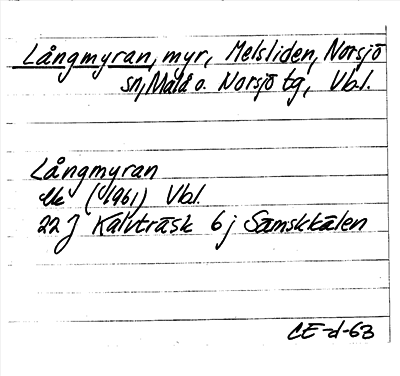 Långmyran, myr, Melsliden, Norsjö
sn, Malå o. Norsjö tg, Vbl.
Långmyran
ek (1961) Vbl.
22 J Kalvträsk 6 j Sämskkälen
CE-d-63